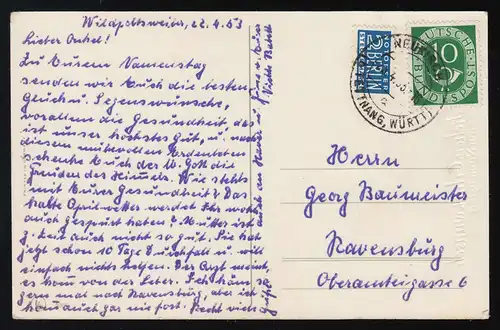 Wildpoltsweiler, 22.4.53
Lieber Onkel!
Zu Eurem Namenstag
senden wir Euch die besten
Glück u. Segenswünsche,
vorallem die Gesundheit das
ist unser höchstes Gut, u. nach
diesem mühevollen Erdenleben
schenke Euch der lb. Gott die
Freuden des Himmels. Wie stehts
mit Eurer Gesundheit? Das
kalte Aprilwetter werdet Ihr wohl
auch gespürt haben? Mutter ist
z. Zeit auch nicht so gut, Sie hat
jetzt schon 10 Tage Durchfall u. will
einfach nichts helfen. Der Arzt meint,
es kom von der Leber. Ich käm so
gern mal nach Ravensburg, aber ich
kom auch gar nie fort. Recht viele Grüße
auch an
NOTOPFER
2 BERLIN
STEUERMARKE
DEUTSCHE
10
BUNDESPOST
(TETTNANG, WÜRTT)
Herrn
Georg Baumeister
Ravensburg
Oberamteigasse 6